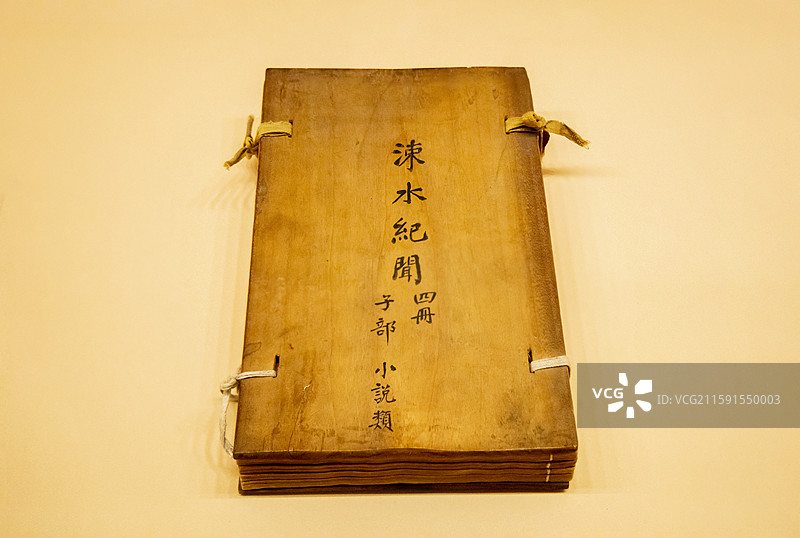 涑水紀聞
四冊
子部 小說類
VCG
ID: VCG211591550003